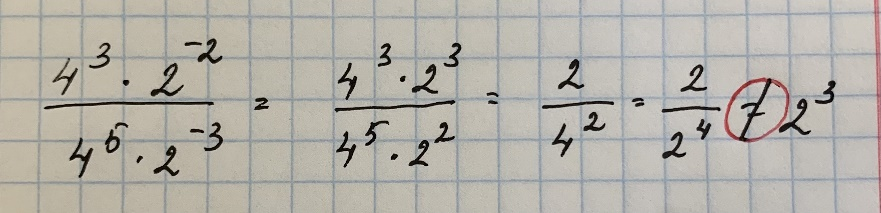 \frac{4^3 \cdot 2^{-2}}{4^5 \cdot 2^{-3}} = \frac{4^3 \cdot 2^3}{4^5 \cdot 2^2} = \frac{2}{4^2} = \frac{2}{2^4} \neq 2^3